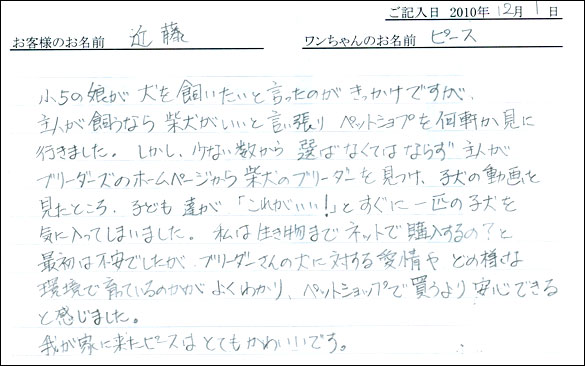 ご記入日 2010年 12月 1日
お客様のお名前 近藤 ワンちゃんのお名前 ピース
小5の娘が 犬を飼いたいと言ったのが きっかけですが、
主人が飼うなら 柴犬がいいと言い張り ペットショプを何軒か見に
行きました。しかし、少ない数から 選ばなくてはならず 主人が
ブリーダーズのホームページから柴犬のブリーダーを見つけ、子犬の動画を
見たところ、子ども達が「これがいい!」とすぐに一匹の子犬を
気に入ってしまいました。私は生き物まで ネットで購入するの?と
最初は不安でしたが、ブリーダーさんの犬に対する愛情や どの様な
環境で育ているのかがよくわかり、ペットショップで買うより安心できる
と感じました。
我が家に来たピースはとてもかわいいです。